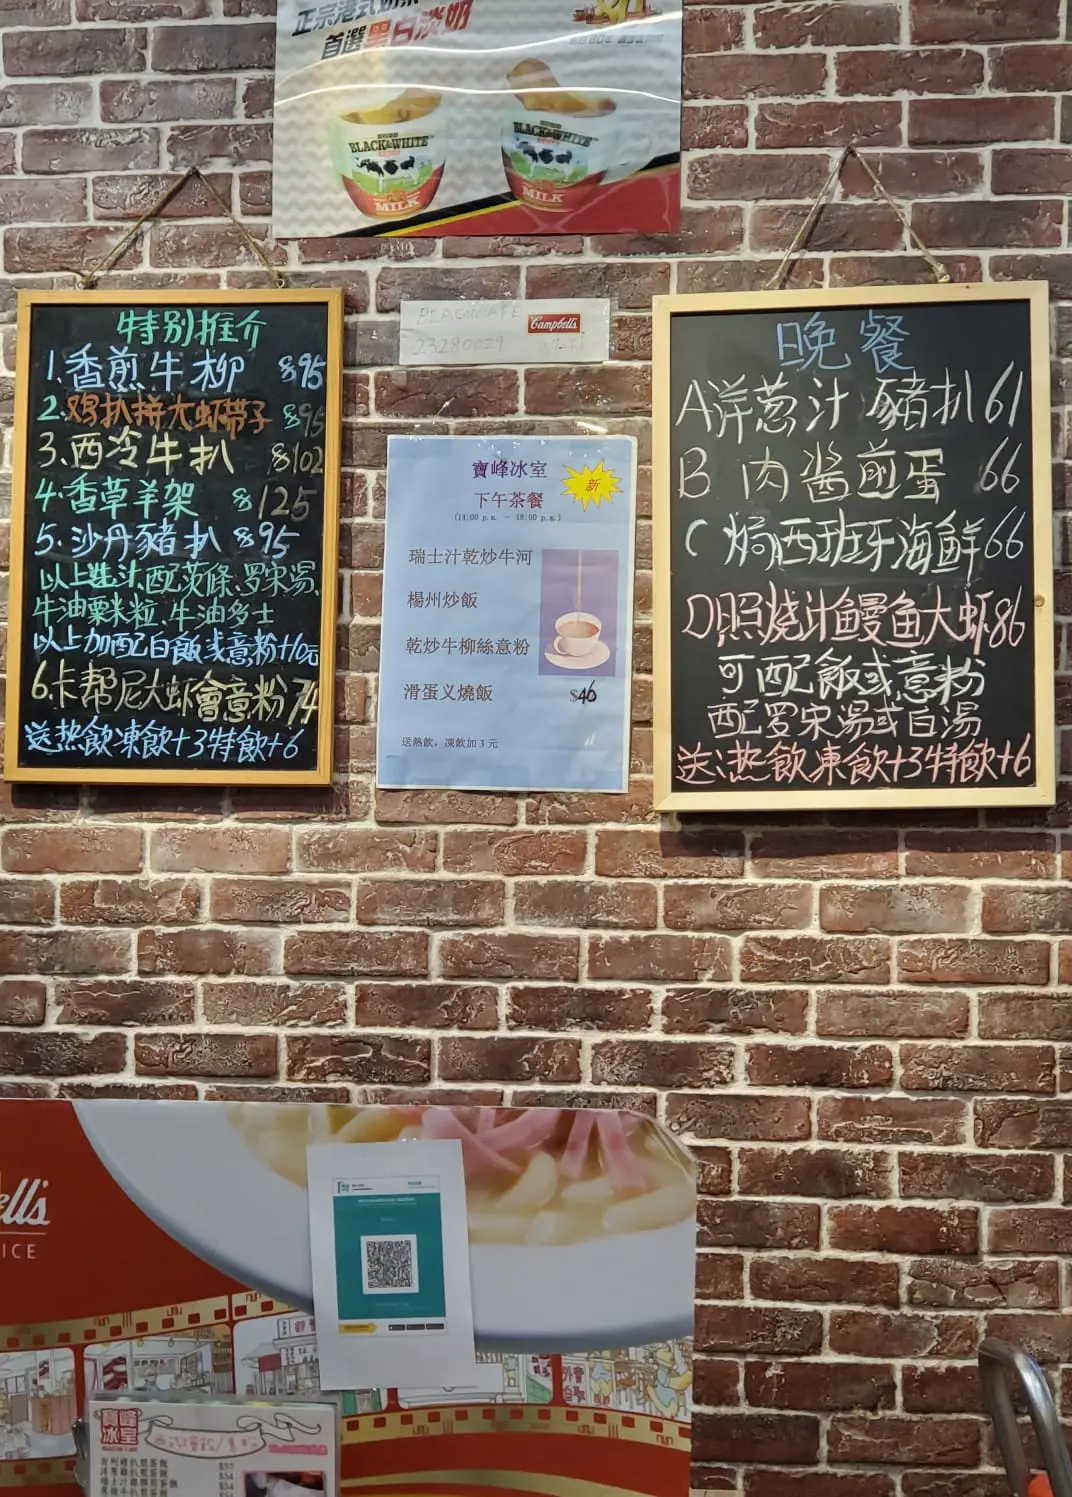 正宗港式奶茶
首選黑白淡奶
BLACK&WHITE
MILK
BLACK&WHITE
MILK
特别推介
1.香煎牛柳 $95
2.鸡扒拼大虾带子 $95
3.西冷牛扒 $102
4.香草羊架 $125
5.沙丹豬扒 $95
以上进汁.配茨條.罗宋湯.
牛油粟米粒.牛油多士
以上加配白飯或意粉+10元
6.卡帮尼大虾會意粉74
送热飲凍飲+3特飲+6
Campbell's
23280029
寶峰冰室
新
下午茶餐
(14:00 p.m. - 18:00 p.m.)
瑞士汁乾炒牛河
楊州炒飯
乾炒牛柳絲意粉
滑蛋义燒飯
$46
送熱飲，凍飲加 3 元
晚餐
A洋葱汁豬扒61
B 肉酱煎蛋 66
C 焗西班牙海鮮66
D照烧汁鰻鱼大虾86
可配飯或意粉
配罗宋湯或白湯
送:热飲凍飲+3特飲+6
ell's
ICE
寶峰
冰室